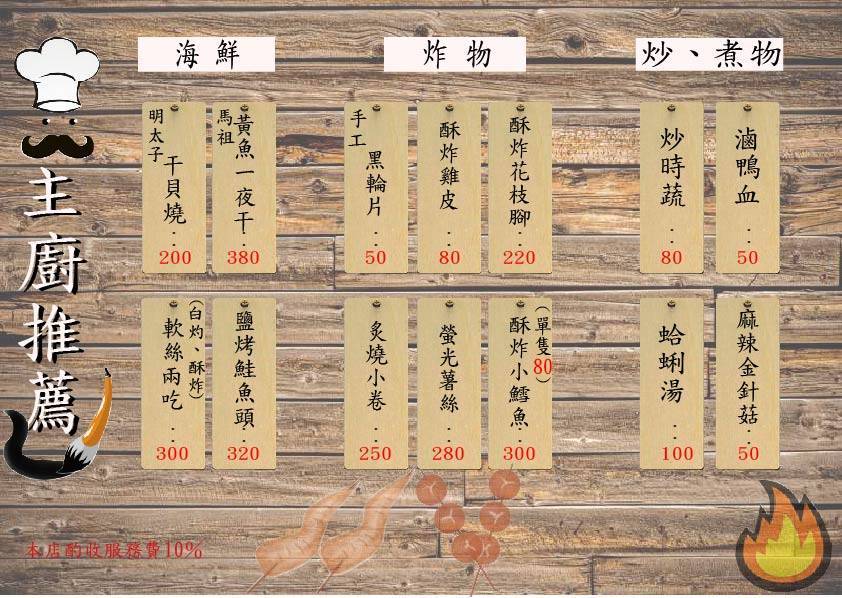 主廚推薦
海鮮
明太子
干貝燒
200
馬祖
黃魚一夜干
380
(白灼、酥炸)
軟絲兩吃
300
鹽烤鮭魚頭
320
炸物
手工
黑輪片
50
酥炸雞皮
80
酥炸花枝腳
220
炙燒小卷
250
螢光薯絲
280
(單隻80)
酥炸小鱈魚
300
炒、煮物
炒時蔬
80
滷鴨血
50
蛤蜊湯
100
麻辣金針菇
50
本店酌收服務費10%